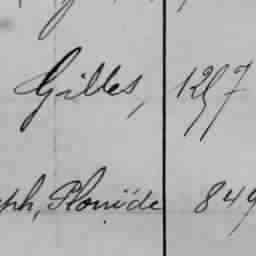 Gilles, 1257
ph, Plouïde 849